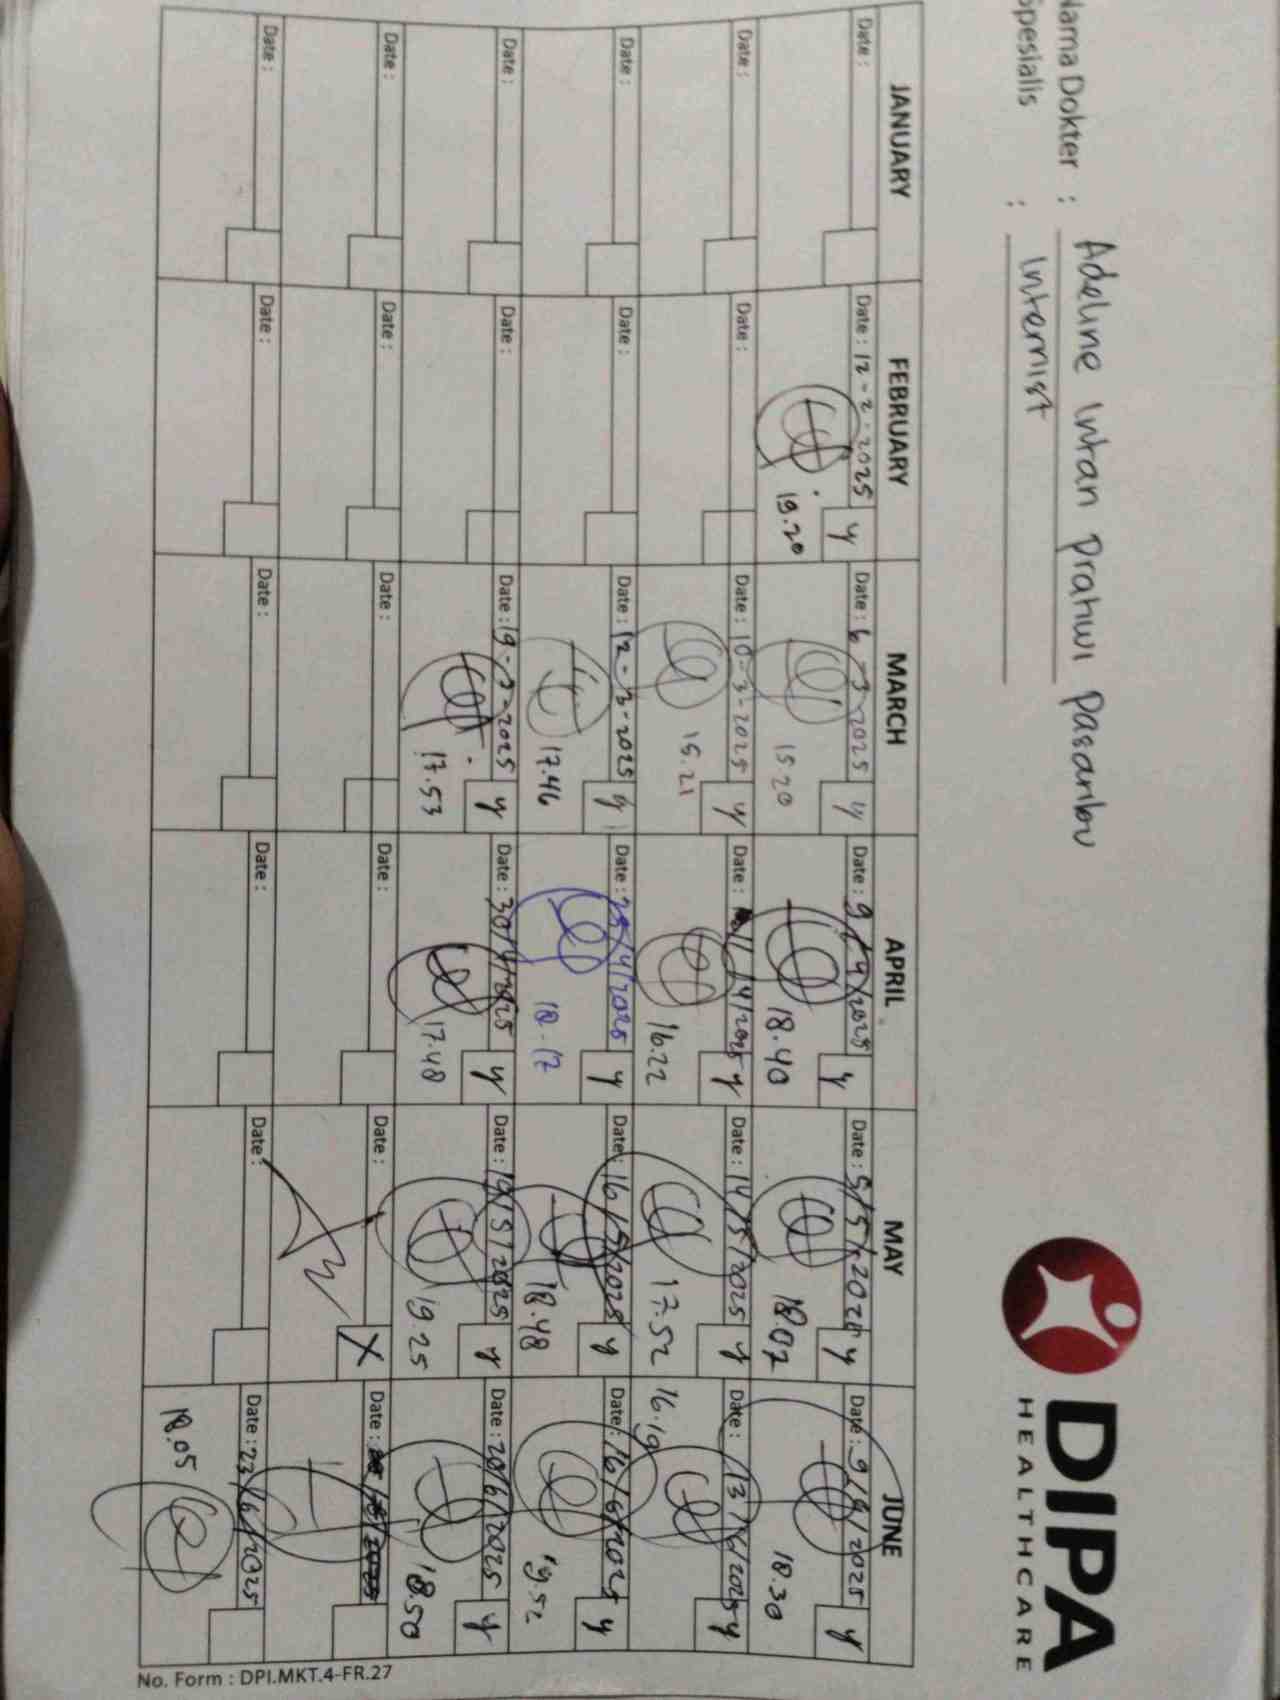 Nama Dokter : Adeline Intan Prahwi Pasaribu
Spesialis : Internist
DIPA
HEALTHCARE
JANUARY FEBRUARY MARCH APRIL MAY JUNE
Date : Date : 12-2-2025 y Date : 6-3-2025 y Date : 9/4/2025 y Date : 5/5/2025 y Date : 9/6/2025 y
19.20 15.20 18.40 18.07 18.30
Date : Date : Date : 10-3-2025 y Date : 11/4/2025 y Date : 14/5/2025 y Date : 13/6/2025 y
15.21 16.22 17.52 16.19
Date : Date : Date : 12-3-2025 y Date : 25/4/2025 y Date : 16/5/2025 y Date : 16/6/2025 y
17.46 18-17 18.48 19.52
Date : Date : Date : 19-3-2025 y Date : 30/4/2025 y Date : 19/5/2025 y Date : 20/6/2025 y
17.53 17.48 19 25 18.50
Date : Date : Date : Date : Date : X Date :
Date : Date : Date : Date : Date : Date : 23/6/2025
18.05
No. Form : DPI.MKT.4-FR.27